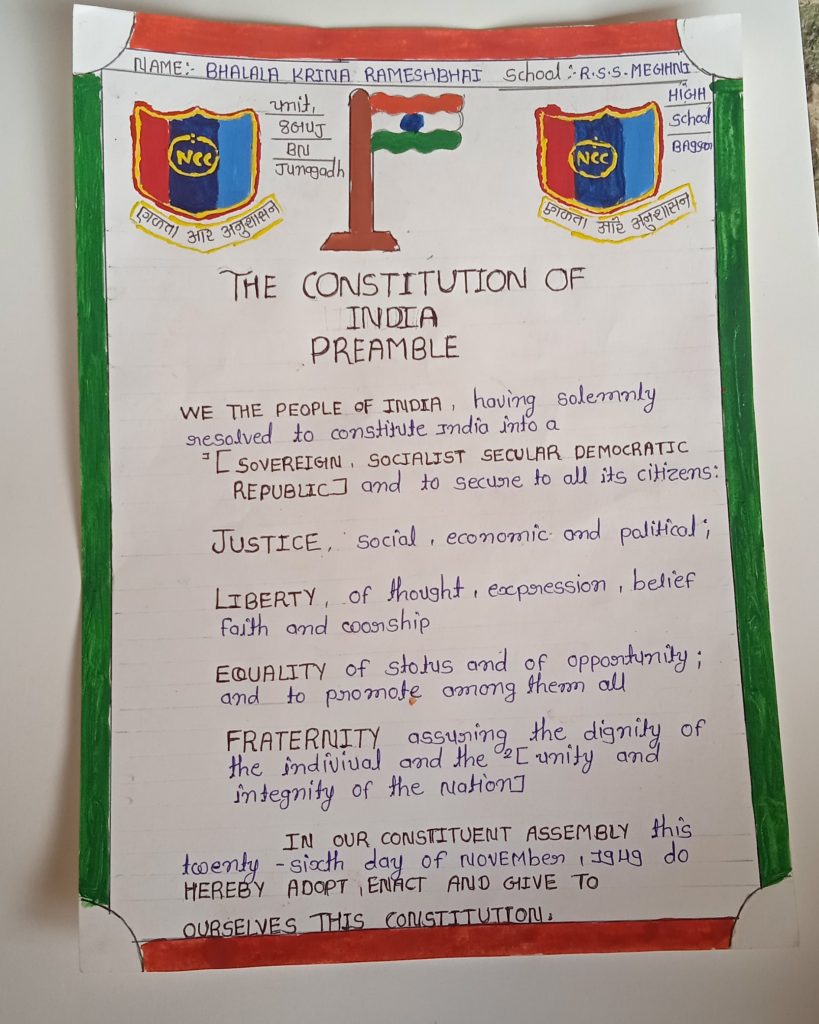 NAME:- BHALALA KRINA RAMESHBHAI School:- R.S.S. MEGHNI
HIGH
School
BAgsar
unit,
8GUJ
BN
Junagadh
NCC
एकता और अनुशासन
NCC
एकता और अनुशासन
THE CONSTITUTION OF
INDIA
PREAMBLE
WE THE PEOPLE OF INDIA, having solemnly
resolved to constitute India into a
¹[SOVEREIGN, SOCIALIST SECULAR DEMOCRATIC
REPUBLIC] and to secure to all its citizens:
JUSTICE, social, economic and political;
LIBERTY, of thought, expression, belief
faith and worship
EQUALITY of status and of opportunity;
and to promote among them all
FRATERNITY assuring the dignity of
the indiviual and the ²[unity and
integnity of the Nation]
IN OUR CONSTITUENT ASSEMBLY this
twenty - sixth day of NOVEMBER, 1949 do
HEREBY ADOPT, ENACT AND GIVE TO
OURSELVES THIS CONSTITUTION.